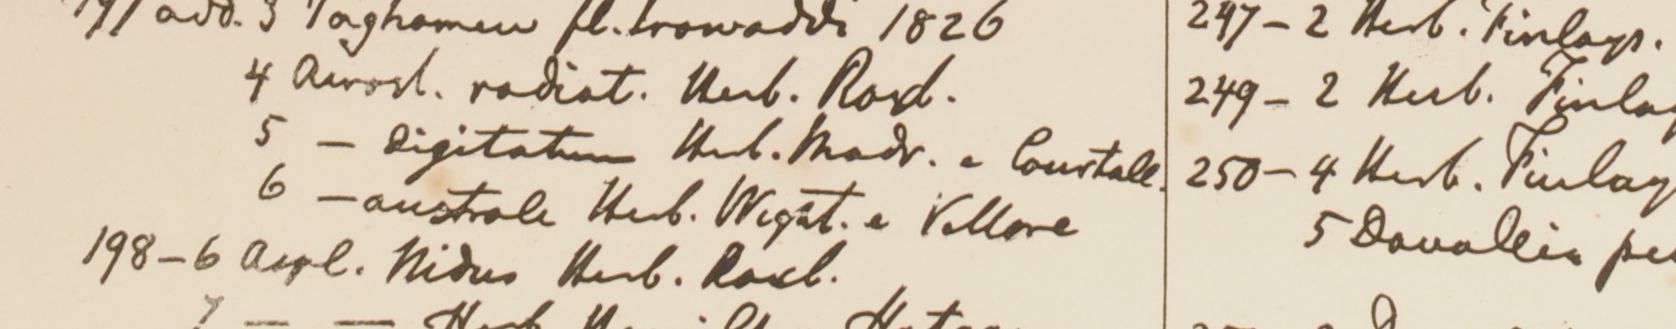 197 add. 3 Taghamew fl. Irawaddi 1826
4 Acrost. radiat. Herb. Roxb.
5 – digitatum Herb. Madr. e Courtall.
6 – australe Herb. Wight. e Vellore
198–6 Aspl. Nidus Herb. Roxb.
7 – — Herb
247–2 Herb. Finlays.
249–2 Herb. Finlay
250–4 Herb. Finlay
5 Davallia pe